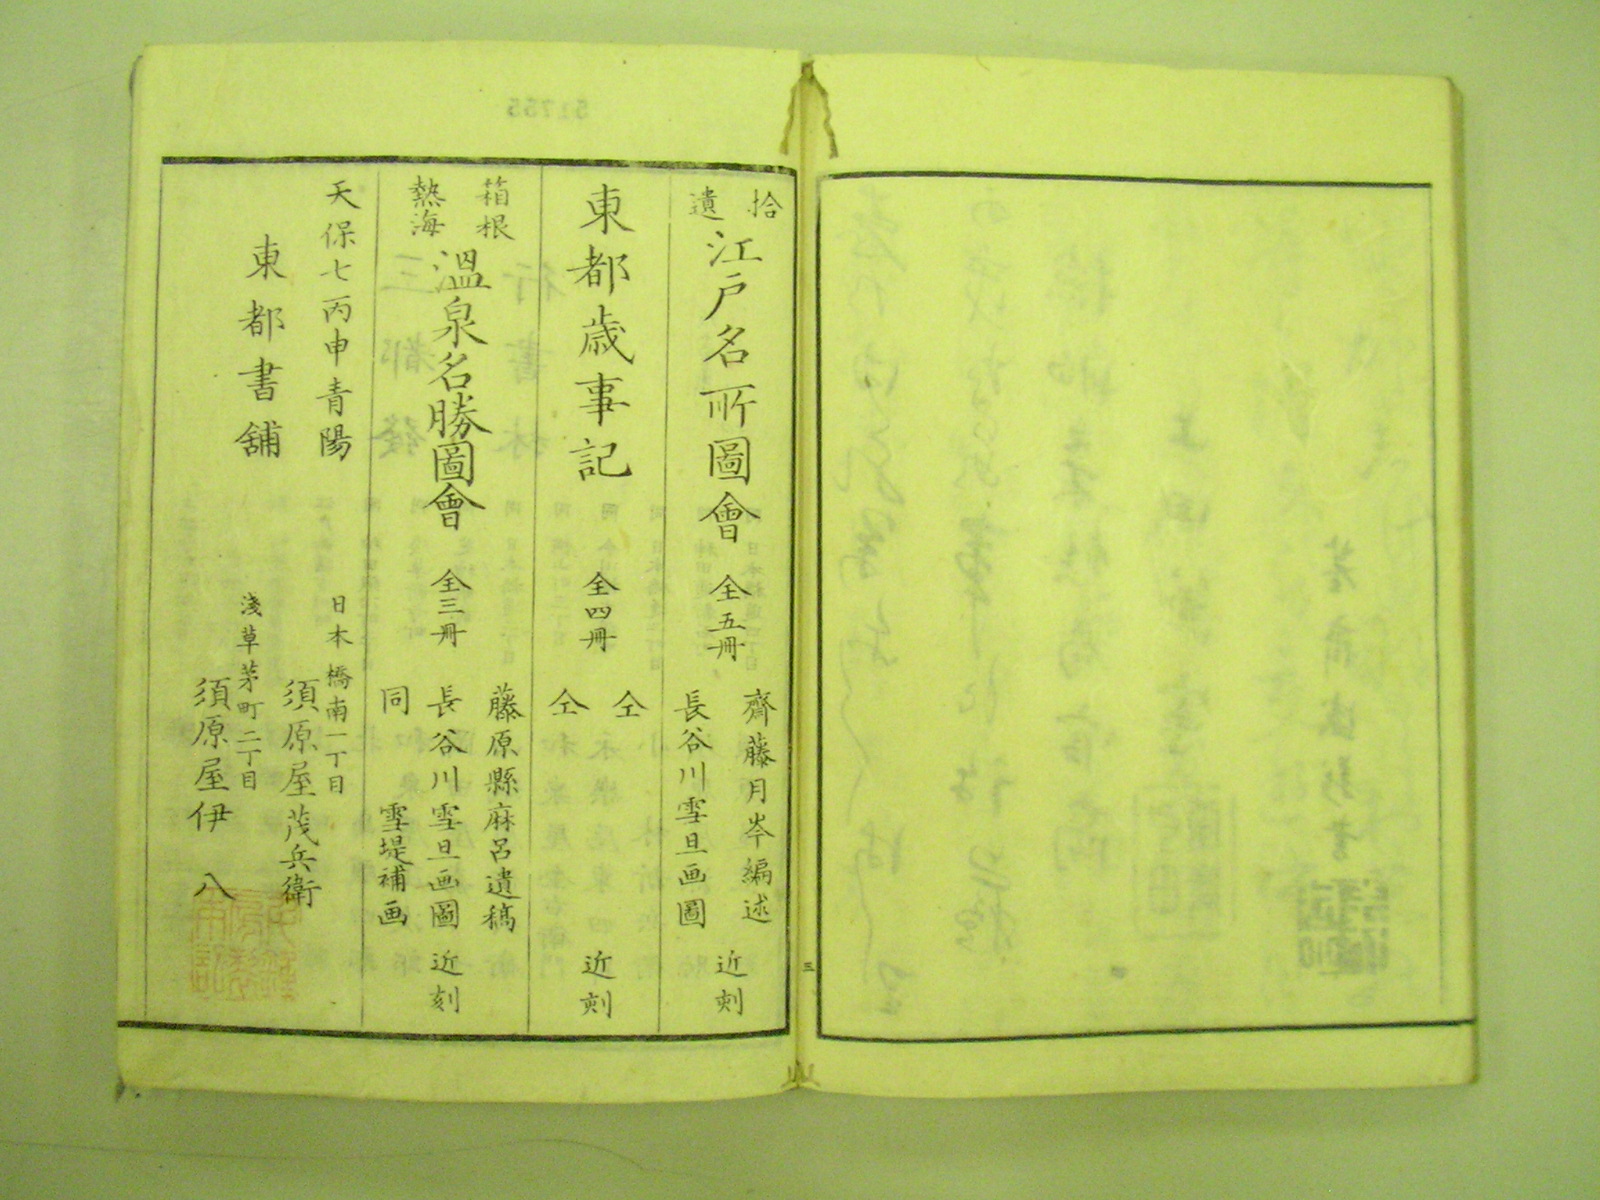 拾遺
江戸名所圖會 全五冊
齊藤月岑編述
長谷川雪旦画圖
近刻
東都歳事記 全四冊
仝
仝
近刻
箱根
熱海
溫泉名勝圖會 全三冊
藤原縣麻呂遺稿
長谷川雪旦画圖
同 雪堤補画
近刻
天保七丙申青陽
東都書舖
日本橋南一丁目
須原屋茂兵衛
淺草茅町二丁目
須原屋伊八
三